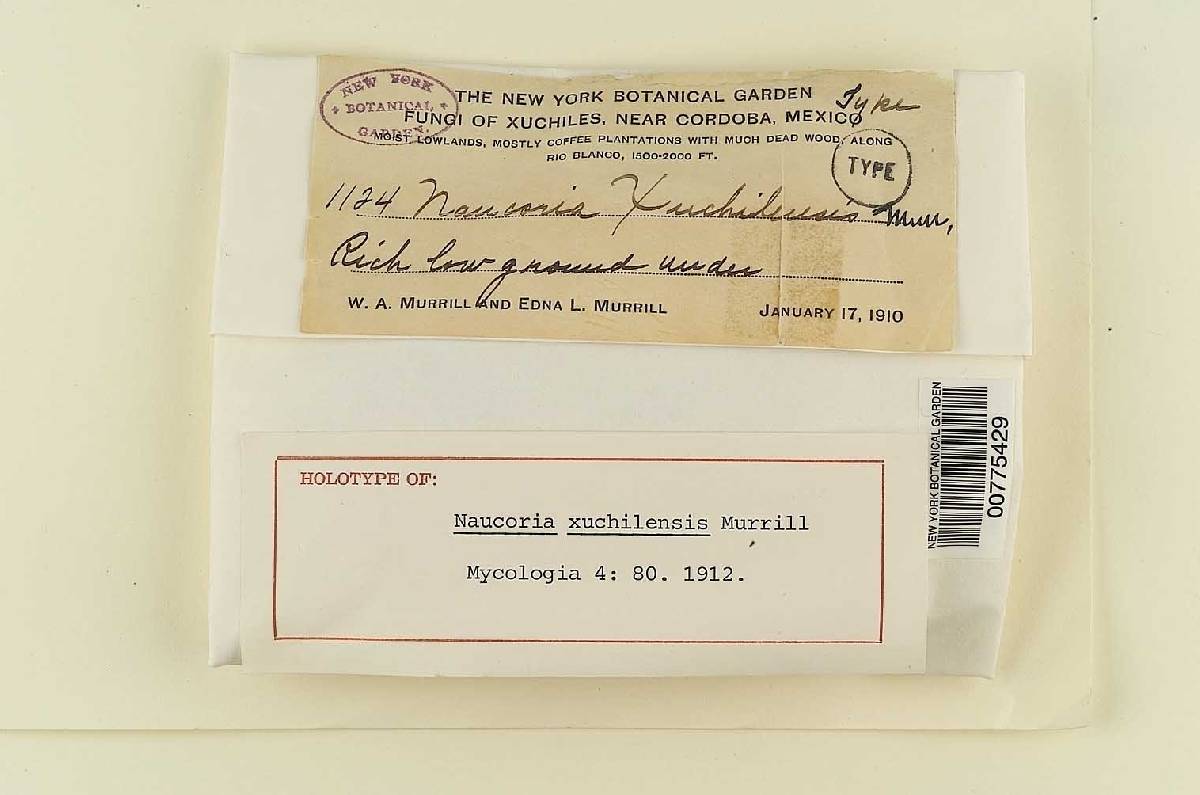 NEW YORK
BOTANICAL
GARDEN.
THE NEW YORK BOTANICAL GARDEN
Type
FUNGI OF XUCHILES, NEAR CORDOBA, MEXICO
MOIST LOWLANDS, MOSTLY COFFEE PLANTATIONS WITH MUCH DEAD WOOD, ALONG
RIO BLANCO, 1500-2000 FT.
TYPE
1124 Naucoria Xuchilensis Murr.
Rich low ground under
W. A. MURRILL AND EDNA L. MURRILL JANUARY 17, 1910
NEW YORK BOTANICAL GARDEN
00775429
HOLOTYPE OF:
Naucoria xuchilensis Murrill
Mycologia 4: 80. 1912.